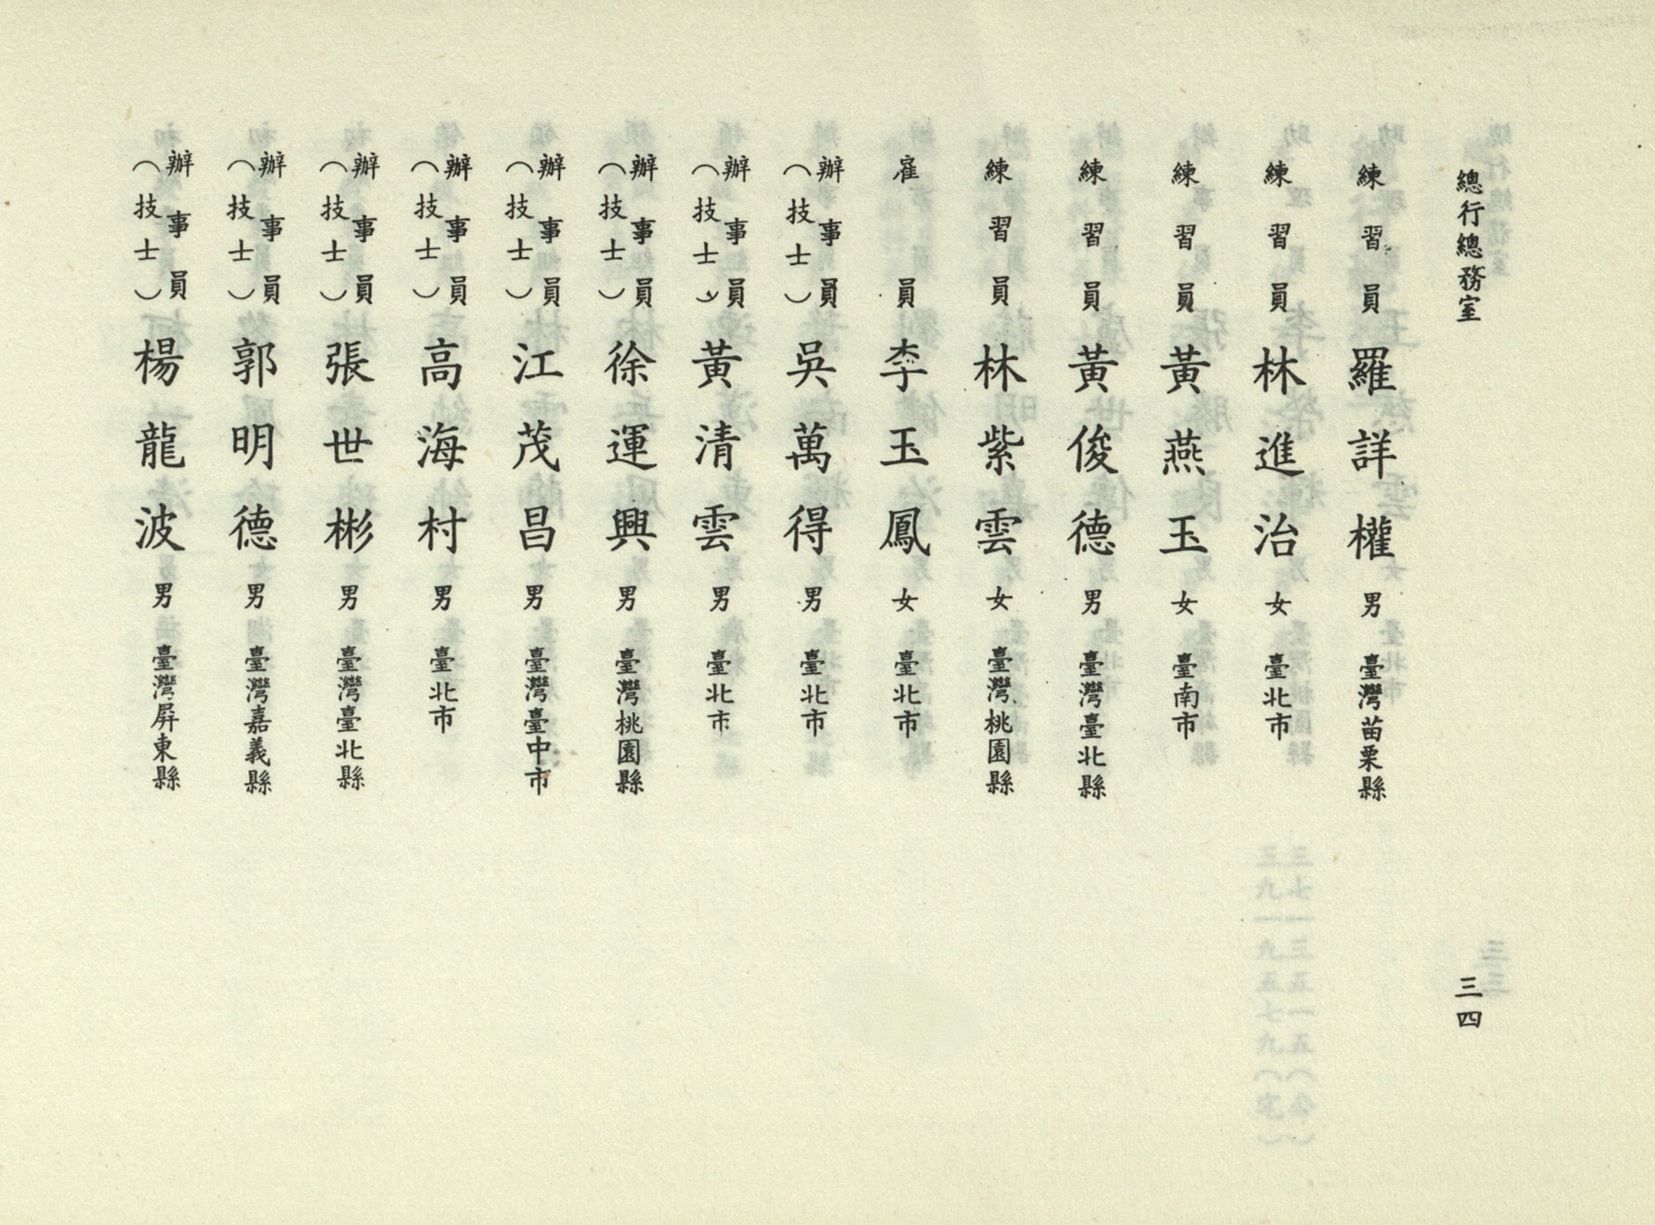 總行總務室 三四
練習員 羅詳權 男 臺灣苗栗縣
練習員 林進治 女 臺北市
練習員 黃燕玉 女 臺南市
練習員 黃俊德 男 臺灣臺北縣
練習員 林紫雲 女 臺灣桃園縣
雇員 李玉鳳 女 臺北市
辦事員（技士） 吳萬得 男 臺北市
辦事員（技士） 黃清雲 男 臺北市
辦事員（技士） 徐運興 男 臺灣桃園縣
辦事員（技士） 江茂昌 男 臺灣臺中市
辦事員（技士） 高海村 男 臺北市
辦事員（技士） 張世彬 男 臺灣臺北縣
辦事員（技士） 郭明德 男 臺灣嘉義縣
辦事員（技士） 楊龍波 男 臺灣屏東縣